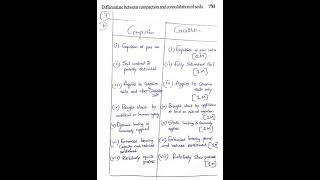 Differentiate between compaction and consolidation of soils. 7M
Compaction
Consolidation
(i) Expulsion of pore air
(i) Expulsion of pore water
[1M]
(ii) Soil involved is partially saturated
(ii) Fully saturated soil
[1M]
(iii) Applies to cohesive soils and also
(iii) Applies to cohesive soils only
[1M]
(iv) Brought about by artificial or human agency
(iv) Brought about by application of load or natural agencies
[1M]
(v) Dynamic loading is commonly applied
(v) Static loading is commonly applied
[1M]
(vi) Enhanced bearing capacity and reduced settlement
(vi) Enhanced bearing power and reduced settlement
[1M]
(vii) Relatively quick process
(vii) Relatively slow process
[1M]